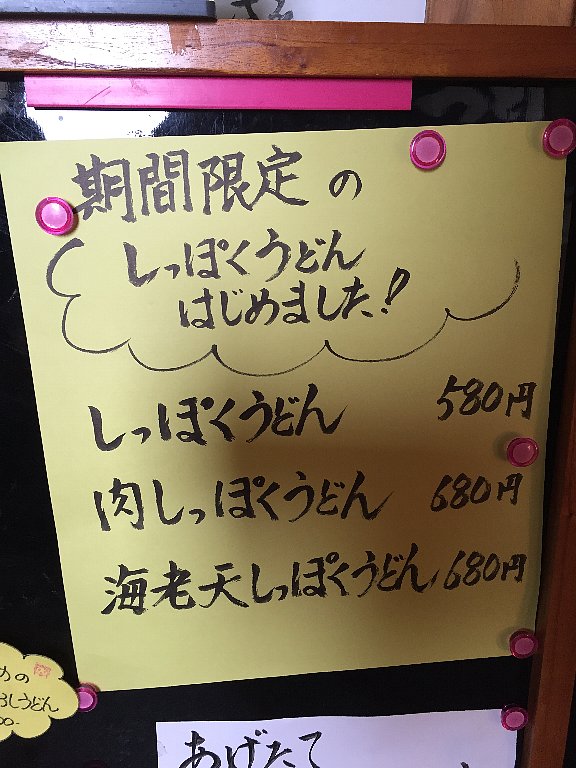 期間限定の
しっぽくうどん
はじめました!
しっぽくうどん 580円
肉しっぽくうどん 680円
海老天しっぽくうどん 680円
めの
ろしうどん
あげたて